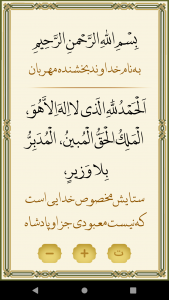 بِسْمِ اللهِ الرَّحْمنِ الرَّحِیمِ
به نام خداوند بخشنده مهربان
اَلْحَمْدُ لِلّهِ الَّذی لا اِلهَ اِلاَّ هُوَ،
الْمَلِكُ الْحَقُّ الْمُبینُ، الْمُدَبِّرُ
بِلا وَزیرٍ،
ستایش مخصوص خدایی است
که نیست معبودی جز او پادشاه
− + ت